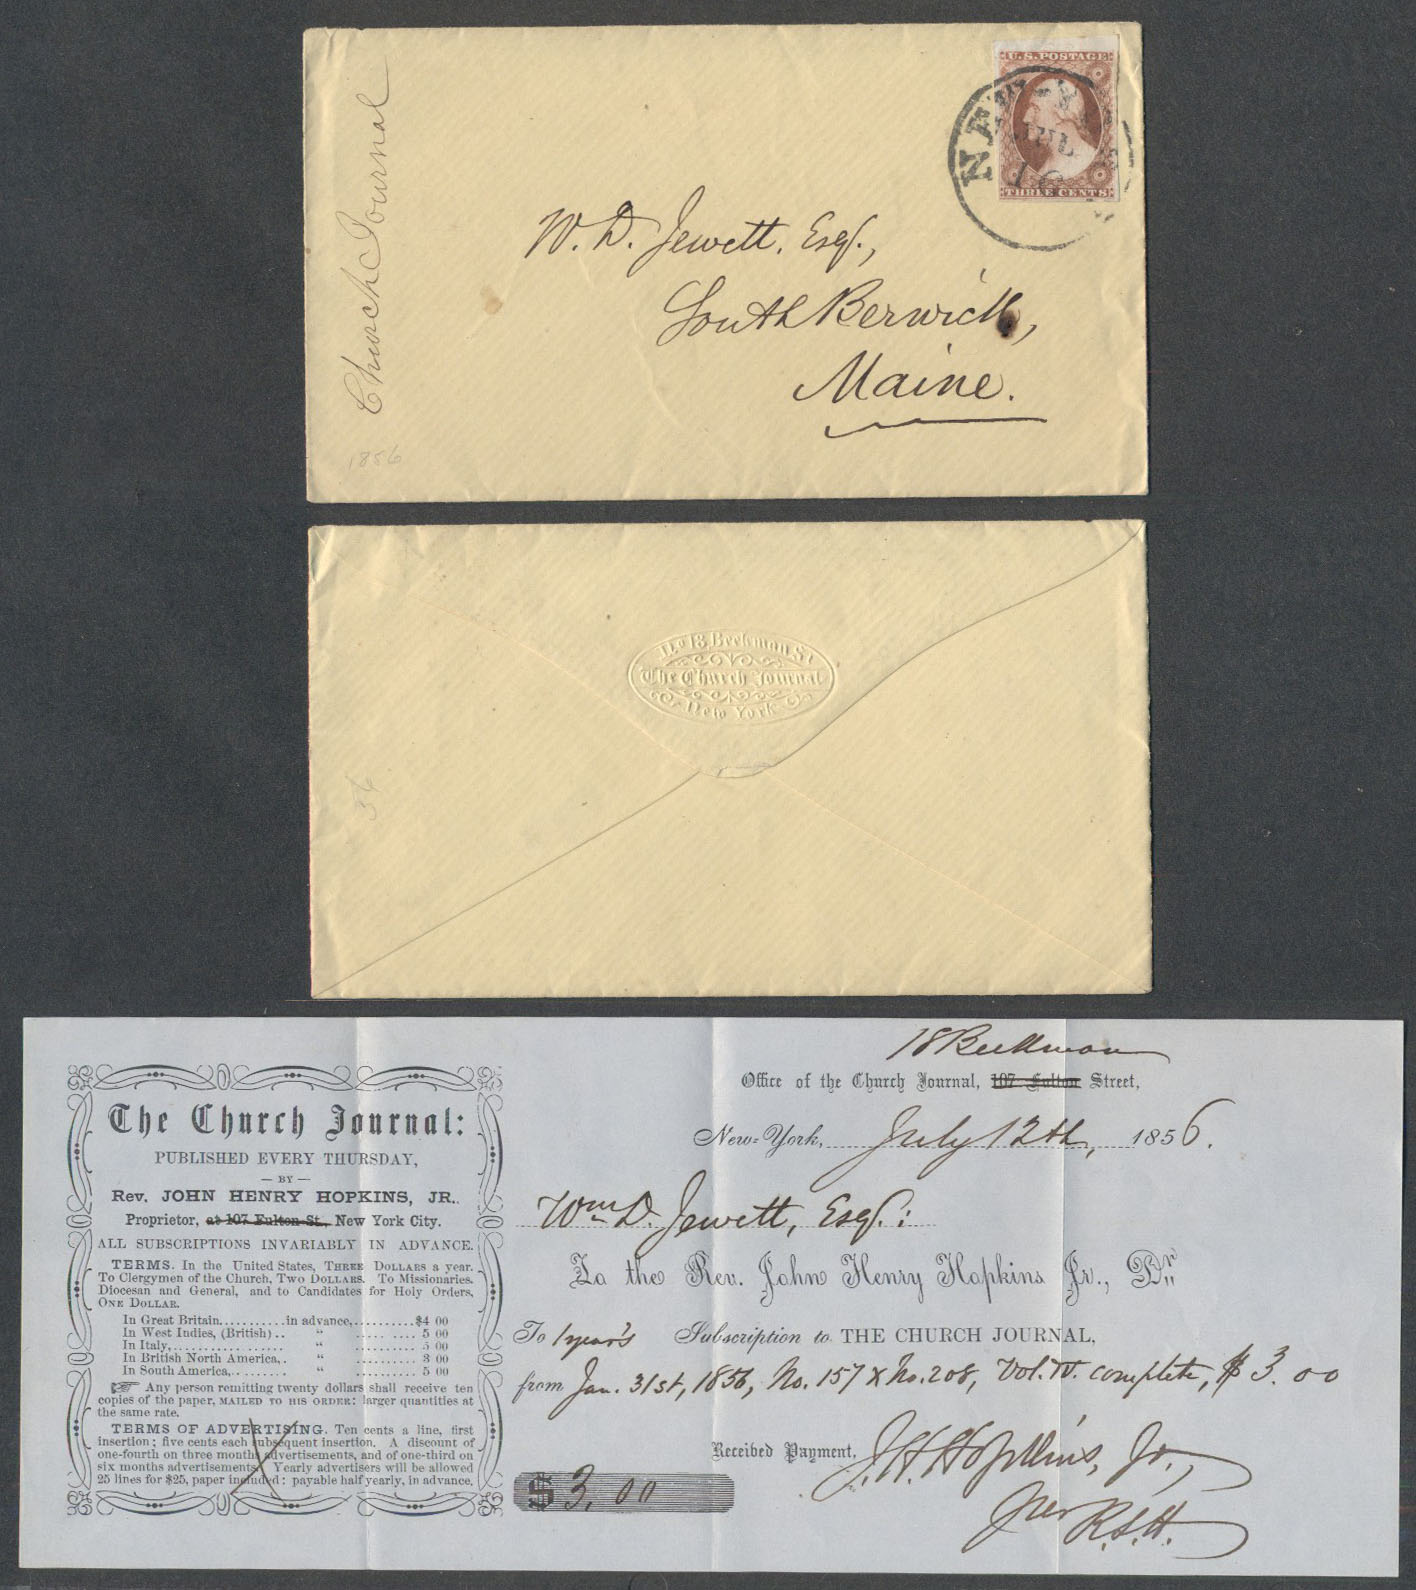 Church Journal
1856
U.S. POSTAGE
THREE CENTS
NEW-Y
JUL
16
W. D. Jewett, Esq.,
South Berwick,
Maine.
No 13 Beekman St
The Church Journal
New York
36
The Church Journal:
PUBLISHED EVERY THURSDAY,
— BY —
Rev. JOHN HENRY HOPKINS, JR.
Proprietor, at 107 Fulton St., New York City.
ALL SUBSCRIPTIONS INVARIABLY IN ADVANCE.
TERMS. In the United States, THREE DOLLARS a year.
To Clergymen of the Church, TWO DOLLARS. To Missionaries.
Diocesan and General, and to Candidates for Holy Orders,
ONE DOLLAR.
In Great Britain..........in advance,..........$4 00
In West Indies, (British).. “ .......... 5 00
In Italy,.................... “ .......... 5 00
In British North America,. “ .......... 3 00
In South America,......... “ .......... 5 00
☞ Any person remitting twenty dollars shall receive ten
copies of the paper, MAILED TO HIS ORDER: larger quantities at
the same rate.
TERMS OF ADVERTISING. Ten cents a line, first
insertion; five cents each subsequent insertion. A discount of
one-fourth on three months advertisements, and of one-third on
six months advertisements. Yearly advertisers will be allowed
25 lines for $25, paper included: payable half yearly, in advance.
18 Beekman
Office of the Church Journal, 107 Fulton Street,
New-York, July 12th, 1856.
Wm D. Jewett, Esq.:
To the Rev. John Henry Hopkins Jr., Dr.
To 1 year's Subscription to THE CHURCH JOURNAL,
from Jan. 31st, 1856, No. 157 x No. 208, Vol. IV. complete, $3.00
Received Payment, J. H. Hopkins, Jr.,
$ 3.00
per R.S.H.